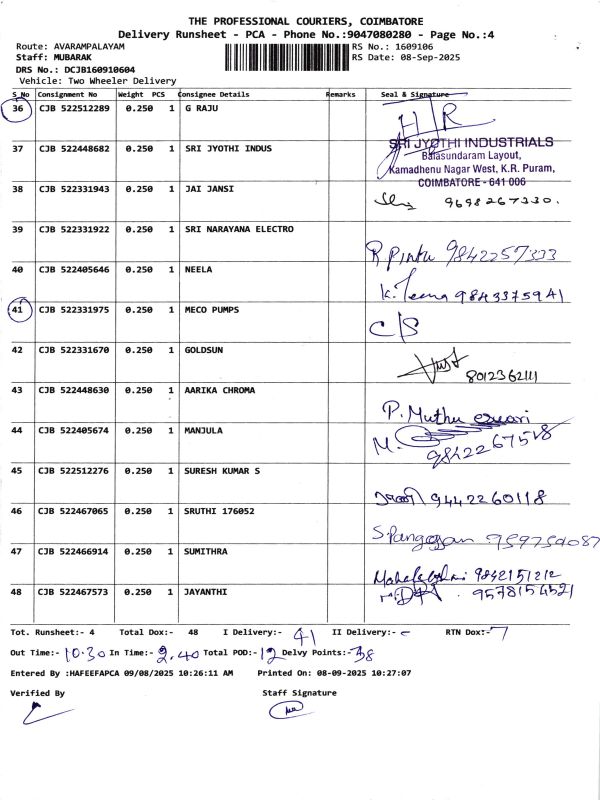 THE PROFESSIONAL COURIERS, COIMBATORE
Delivery Runsheet - PCA - Phone No.:9047080280 - Page No.:4
Route: AVARAMPALAYAM RS No.: 1609106
Staff: MUBARAK RS Date: 08-Sep-2025
DRS No.: DCJB160910604
Vehicle: Two Wheeler Delivery
S_No Consignment No Weight PCS Consignee Details Remarks Seal & Signature
36 CJB 522512289 0.250 1 G RAJU H/R
37 CJB 522448682 0.250 1 SRI JYOTHI INDUS SRI JYOTHI INDUSTRIALS
Balasundaram Layout,
Kamadhenu Nagar West, K.R. Puram,
COIMBATORE - 641 006
38 CJB 522331943 0.250 1 JAI JANSI 9698267330.
39 CJB 522331922 0.250 1 SRI NARAYANA ELECTRO R Pintu 9842257333
40 CJB 522405646 0.250 1 NEELA K. Teena 9843375941
41 CJB 522331975 0.250 1 MECO PUMPS C/S
42 CJB 522331670 0.250 1 GOLDSUN 8012362111
43 CJB 522448630 0.250 1 AARIKA CHROMA P. Muthu
44 CJB 522405674 0.250 1 MANJULA M. 9842267528
45 CJB 522512276 0.250 1 SURESH KUMAR S 9442260118
46 CJB 522467065 0.250 1 SRUTHI 176052
47 CJB 522466914 0.250 1 SUMITHRA 9842151212
48 CJB 522467573 0.250 1 JAYANTHI 9578154521
Tot. Runsheet:- 4 Total Dox:- 48 I Delivery:- 41 II Delivery:- - RTN Dox:- 7
Out Time:- 10.30 In Time:- 2.40 Total POD:- 12 Delvy Points:- 38
Entered By :HAFEEFAPCA 09/08/2025 10:26:11 AM Printed On: 08-09-2025 10:27:07
Verified By Staff Signature